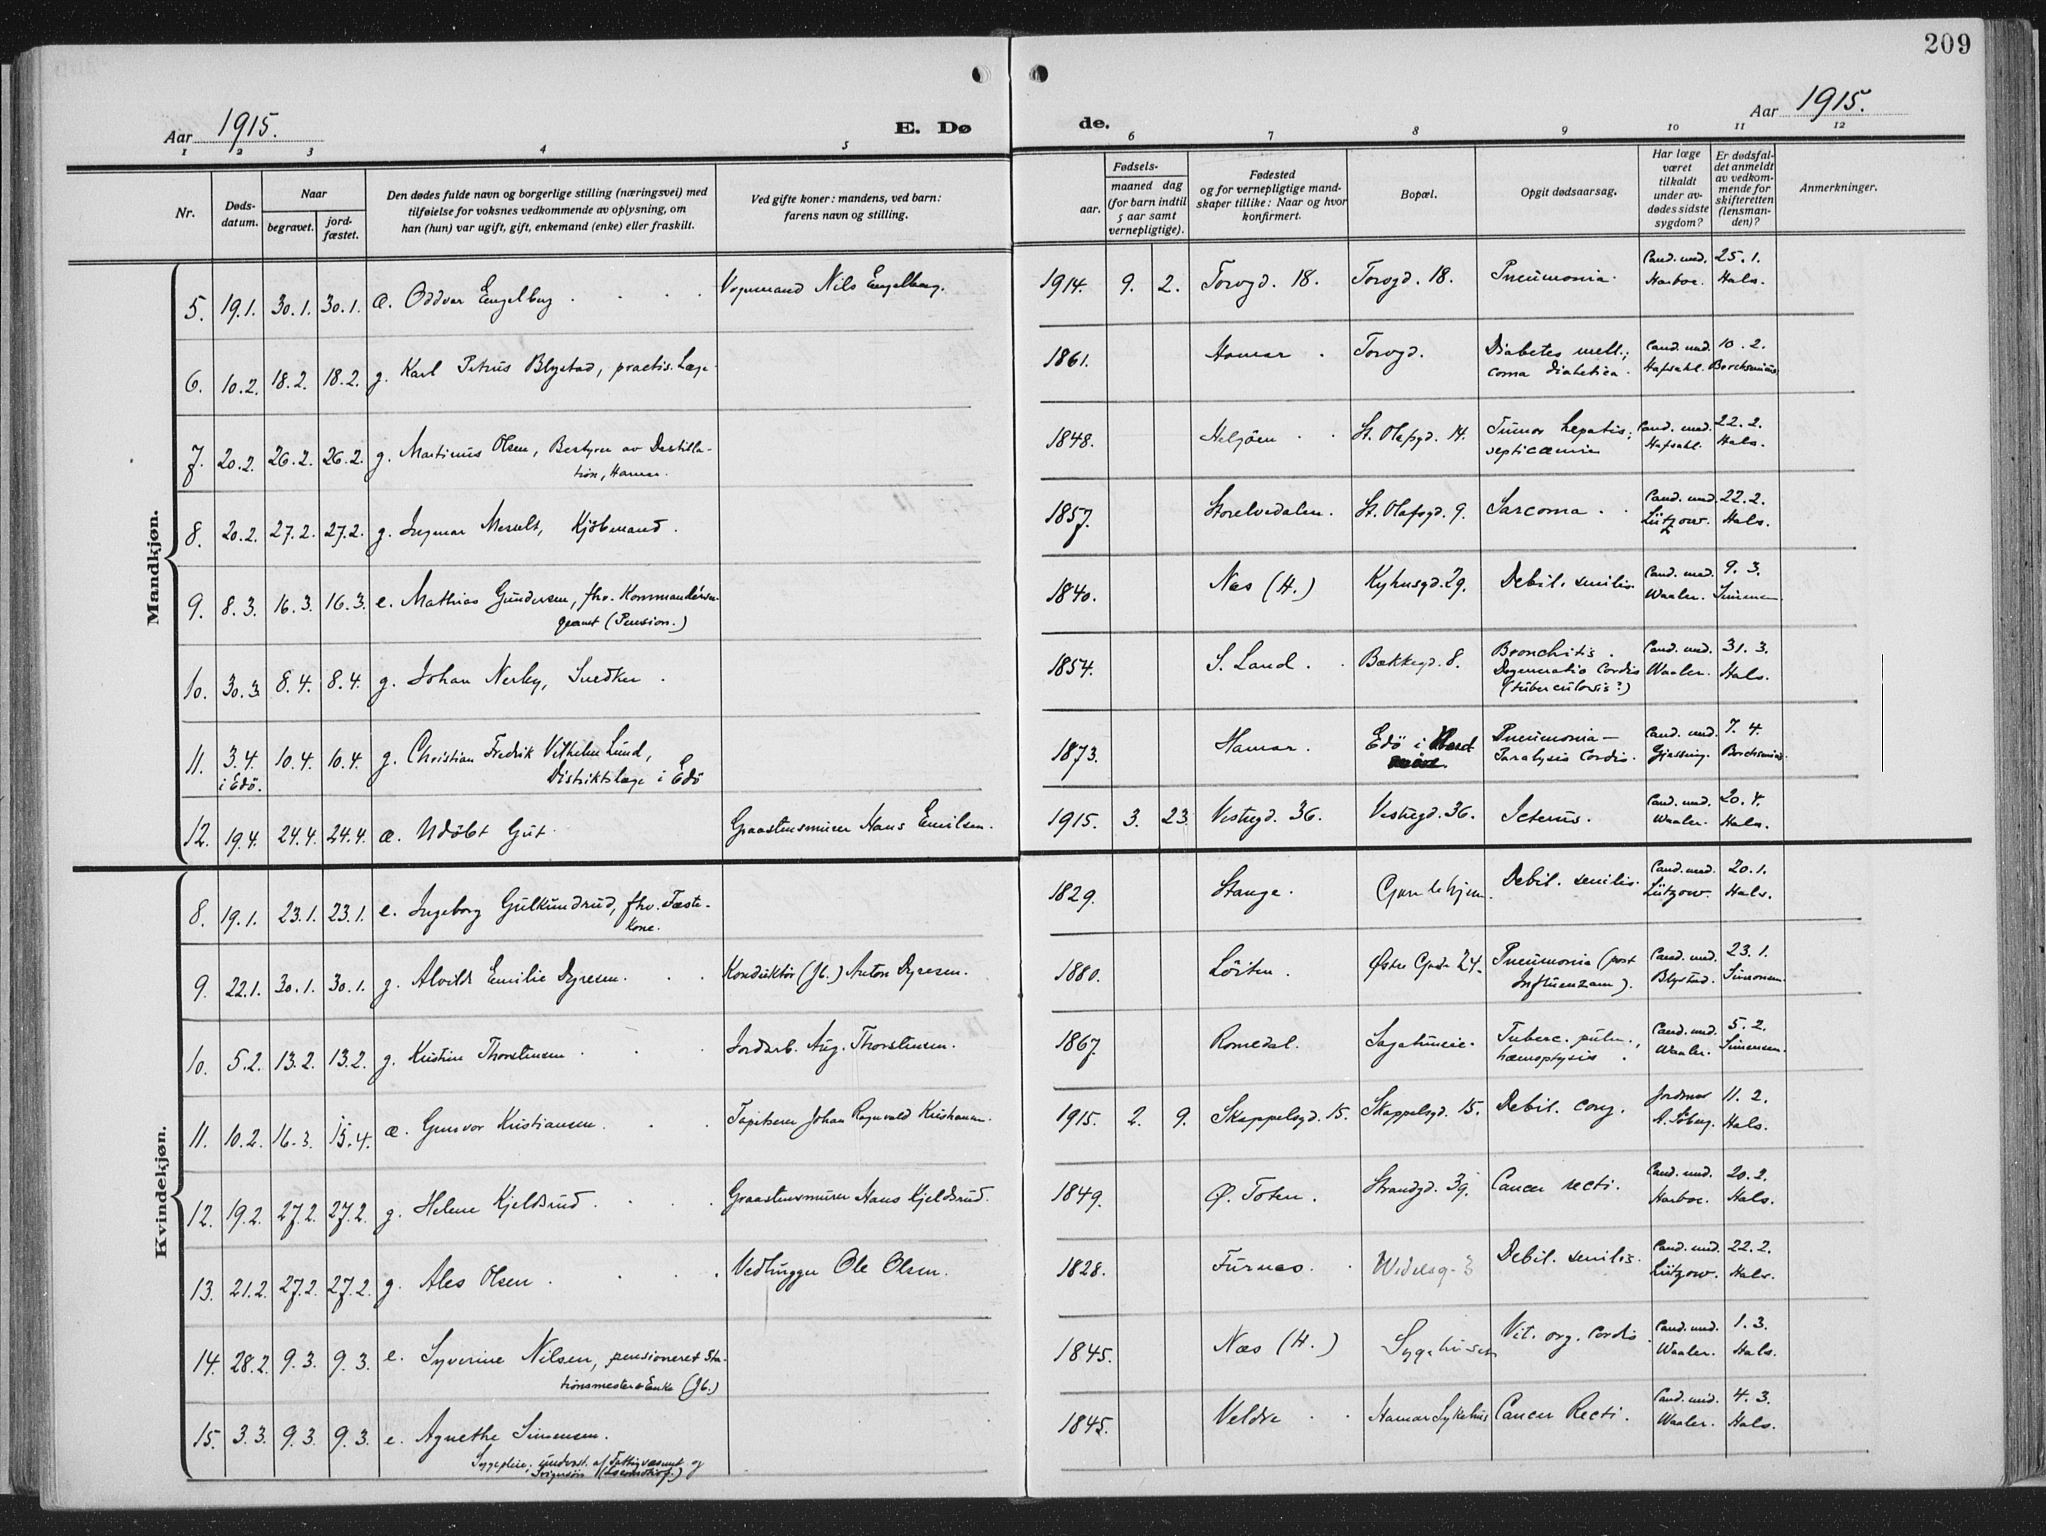 209
Aar 1915.
E. Dø
de.
Aar 1915.
1 2 3 4 5 6 7 8 9 10 11 12
Nr.
Døds-
datum.
Naar
begravet.
jord-
fæstet.
Den dødes fulde navn og borgerlige stilling (næringsvei) med
tilføielse for voksnes vedkommende av oplysning, om
han (hun) var ugift, gift, enkemand (enke) eller fraskilt.
Ved gifte koner: mandens, ved barn:
farens navn og stilling.
Fødsels-
aar.
maaned dag
(for barn indtil
5 aar samt
vernepligtige).
Fødested
og for vernepligtige mand-
skaper tillike: Naar og hvor
konfirmert.
Bopæl.
Opgit dødsaarsag.
Har læge
været
tilkaldt
under av-
dødes sidste
sygdom?
Er dødsfal-
det anmeldt
av vedkom-
mende for
skifteretten
(lensman-
den)?
Anmerkninger.
Mandkjøn.
5. 19.1. 30.1. 30.1. æ. Oddvar Engelberg Vognmand Nils Engelberg. 1914. 9. 2. Torvgd. 18. Torvgd. 18. Pneumonia. Cand. med. Harboe. 25.1. Hals.
6. 10.2. 18.2. 18.2. g. Karl Petrus Blystad, practis. Læge. 1861. Hamar. Torvgd. Diabetes mell.; coma diabetica. Cand. med. Hafsahl. 10.2. Borchsenius
7. 20.2. 26.2. 26.2. g. Martinus Olsen, Bestyrer av Destilla-
tion, Hamar. 1848. Helgöen. St. Olafsgd. 14. Tumor hepatis; septicæmia Cand. med. Hafsahl. 22.2. Hals.
8. 20.2. 27.2. 27.2. g. Ingmar Messelt, Kjöbmand. 1857. Storelvedalen. St. Olafsgd. 9. Sarcoma. Cand. med. Lützow. 22.2. Hals.
9. 8.3. 16.3. 16.3. e. Mathias Gundersen, fhv. Kommandérser-
geant (Pension.) 1840. Næs (H.) Kyhusgd. 29. Debil. senilis. Cand. med. Waaler. 9.3. Simensen.
10. 30.3. 8.4. 8.4. g. Johan Nerby, Snedker. 1854. S. Land. Bækkegd. 8. Bronchitis. Degeneratio cordis (tuberculosis?) Cand. med. Waaler. 31.3. Hals.
11. 3.4. i Edö. 10.4. 10.4. g. Christian Fredrik Vilhelm Lund,
Distriktslæge i Edö 1873. Hamar. Edö i Nord Pneumonia — Paralysis cordis. Cand. med. Gjessing. 7.4. Borchsenius.
12. 19.4. 24.4. 24.4. æ. Udöbt Gut. Graastensmurer Hans Emilsen. 1915. 3. 23. Vestregd. 36. Vestregd. 36. Icterus. Cand. med. Waaler. 20.4. Hals.
Kvindekjøn.
8. 19.1. 23.1. 23.1. e. Ingeborg Gulkundrud, fhv. Fæste-
kone. 1829. Stange. Gamlehjem. Debil. senilis. Cand. med. Lützow. 20.1. Hals.
9. 22.1. 30.1. 30.1. g. Alvilde Emilie Dyresen. Konduktör (Jb.) Anton Dyresen. 1880. Löiten. Østre Gade 24. Pneumonia (post Influenzam). Cand. med. Blystad. 23.1. Simonsen.
10. 5.2. 13.2. 13.2. g. Kristine Thorstensen Jordarb. Aug. Thorstensen. 1867. Romedal. Sagatueie. Tuberc. pulm., hæmoptysis. Cand. med. Waaler. 5.2. Simensen.
11. 10.2. 16.3. 15.4. æ. Gunvor Kristiansen. Tapetserer Johan Ragnvald Kristiansen. 1915. 2. 9. Skappelsgd. 15. Skappelsgd. 15. Debil. cong. Jordmor A. Söberg. 11.2. Hals.
12. 19.2. 27.2. 27.2. g. Helene Kjeldsrud. Graastensmurer Hans Kjeldsrud. 1849. Ø. Toten. Strandgd. 39. Cancer recti. Cand. med. Harboe. 20.2. Hals.
13. 21.2. 27.2. 27.2. g. Ales Olsen. Vedhugger Ole Olsen. 1828. Furnæs. Wedelsg. 3 Debil. senilis. Cand. med. Lützow. 22.2. Hals.
14. 28.2. 9.3. 9.3. e. Syverine Nilsen, pensioneret Sta-
tionsmesters Enke (Jb.) 1845. Næs (H.) Sygehuset Vit. org. cordis. Cand. med. Waaler. 1.3. Hals.
15. 3.3. 9.3. 9.3. e. Agnethe Simensen.
Sygepleie; underst. af Fattigvæsenet og
Svigersön (Locomotivf.) 1845. Veldre. Hamar Sykehus Cancer Recti. Cand. med. Waaler. 4.3. Hals.